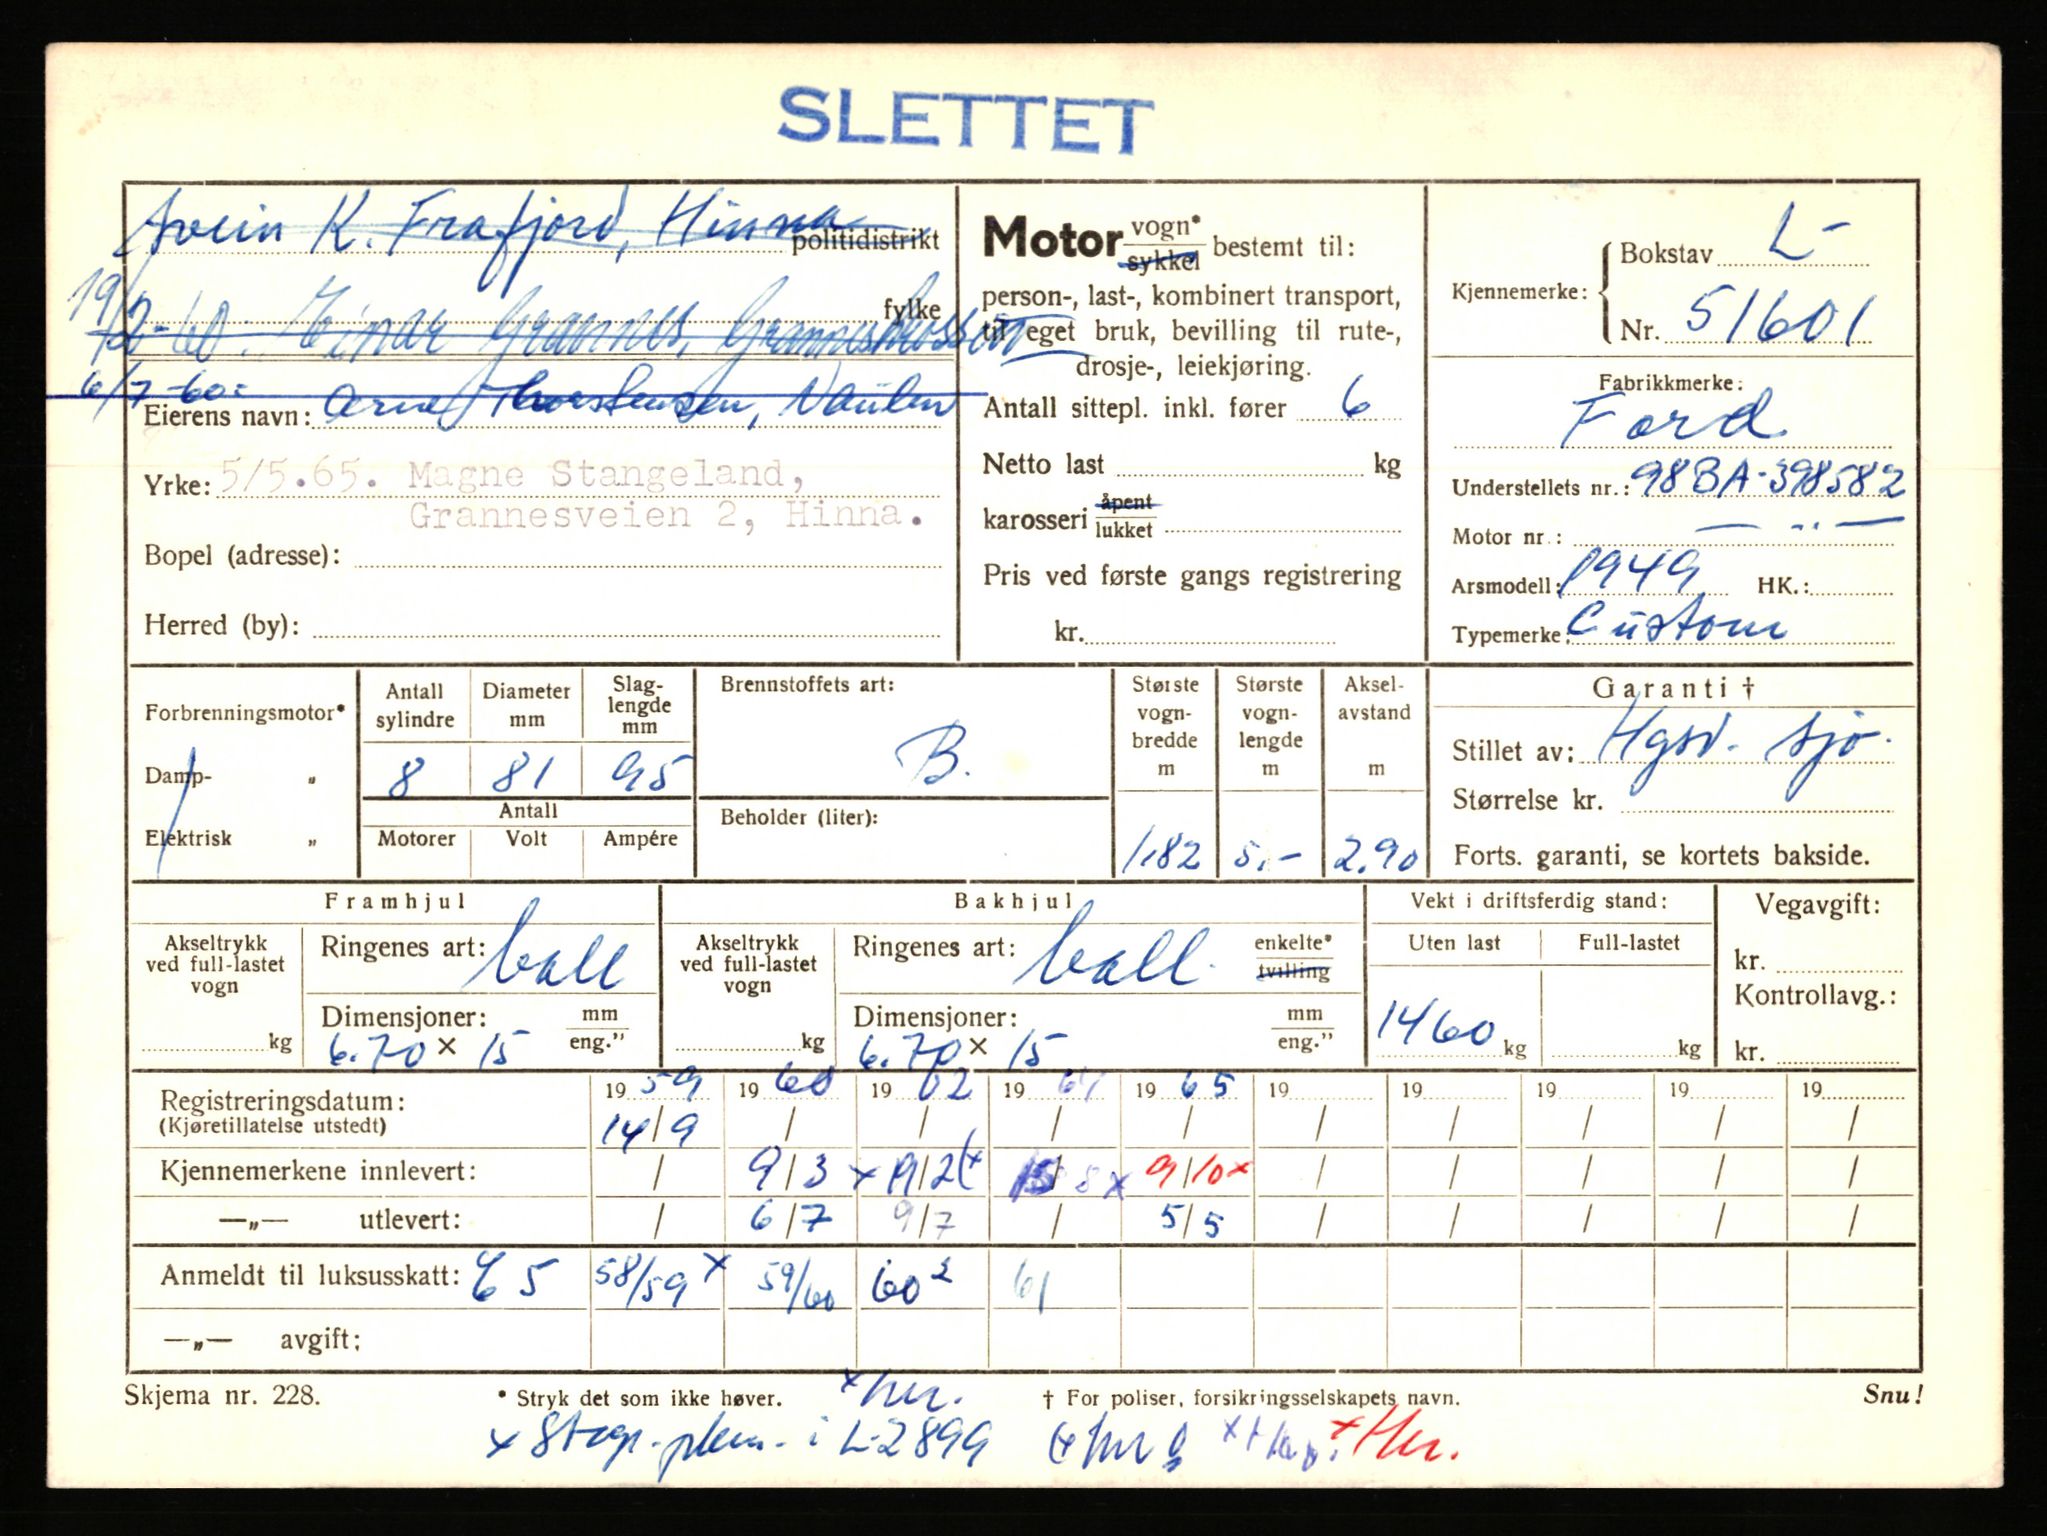 SLETTET
Svein K. Frafjord, Hinna
politidistrikt
19/2-60. Einar Grannes, Grannes
fylke
6/7-60: Arne Thorstensen, Vaulen
Eierens navn:
Yrke: 5/5.65. Magne Stangeland,
Grannesveien 2, Hinna.
Bopel (adresse):
Herred (by):
Motor vogn* sykkel bestemt til:
person-, last-, kombinert transport,
til eget bruk, bevilling til rute-,
drosje-, leiekjøring.
Antall sittepl. inkl. fører 6
Netto last kg
karosseri åpent lukket
Pris ved første gangs registrering
kr.
Kjennemerke: Bokstav L-
Nr. 51601
Fabrikkmerke:
Ford
Understellets nr.: 98BA-398582
Motor nr.: — „ —
Arsmodell: 1949 HK.:
Typemerke: Custom
Forbrenningsmotor*
Damp- „
Elektrisk „
Antall sylindre 8
Diameter mm 81
Slaglengde mm 95
Antall
Motorer Volt Ampére
Brennstoffets art:
B.
Beholder (liter):
Største vogn-bredde m 1.82
Største vogn-lengde m 5.-
Aksel-avstand m 2.90
Garanti †
Stillet av: Hgsd. sjø.
Størrelse kr.
Forts. garanti, se kortets bakside.
Framhjul
Akseltrykk ved full-lastet vogn kg
Ringenes art: ball
Dimensjoner: mm eng."
6.70 × 15
Bakhjul
Akseltrykk ved full-lastet vogn kg
Ringenes art: ball. enkelte* tvilling
Dimensjoner: mm eng."
6.70 × 15
Vekt i driftsferdig stand:
Uten last Full-lastet
1460 kg kg
Vegavgift:
kr.
Kontrollavg.:
kr.
Registreringsdatum: 1959 1960 1962 1964 1965 19 19 19 19 19
(Kjøretillatelse utstedt) 14/9 / / / / / / / / /
Kjennemerkene innlevert: / 9/3 x 19/2 (x 8 x 9/10 x / / / / /
—„— utlevert: / 6/7 9/7 / 5/5 / / / / /
Anmeldt til luksusskatt: 65 58/59 x 59/60 60² 61
—„— avgift:
Skjema nr. 228. * Stryk det som ikke høver. x her. † For poliser, forsikringsselskapets navn. Snu!
x Stgr. i L-2899 x Her.